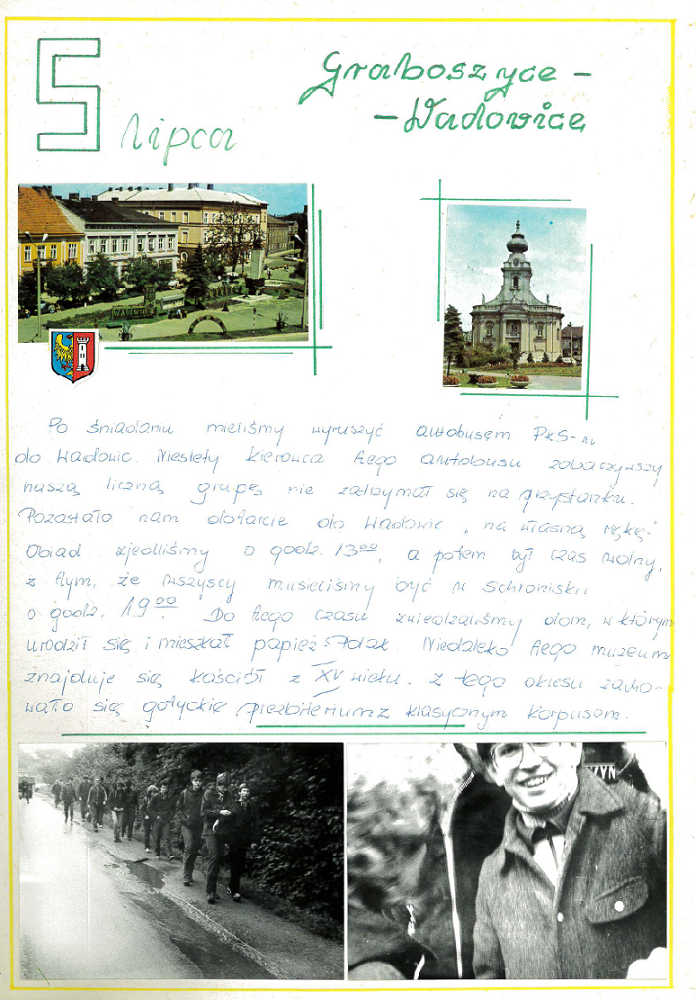 5 lipca
Graboszyce -
- Wadowice
WADOWICE
Po śniadaniu mieliśmy wyruszyć autobusem PKS-u
do Wadowic. Niestety kierowca tego autobusu zobaczywszy
naszą liczną grupę nie zatrzymał się na przystanku.
Pozostało nam dotarcie do Wadowic „na własną rękę".
Obiad zjedliśmy o godz. 13⁰⁰, a potem był czas wolny,
z tym, że wszyscy musieliśmy być w schronisku
o godz. 19⁰⁰. Do tego czasu zwiedzaliśmy dom, w którym
urodził się i mieszkał papież Polak. Niedaleko tego muzeum
znajduje się kościół z XV wieku. Z tego okresu zacho-
wało się gotyckie prezbiterium z klasycznym korpusem.